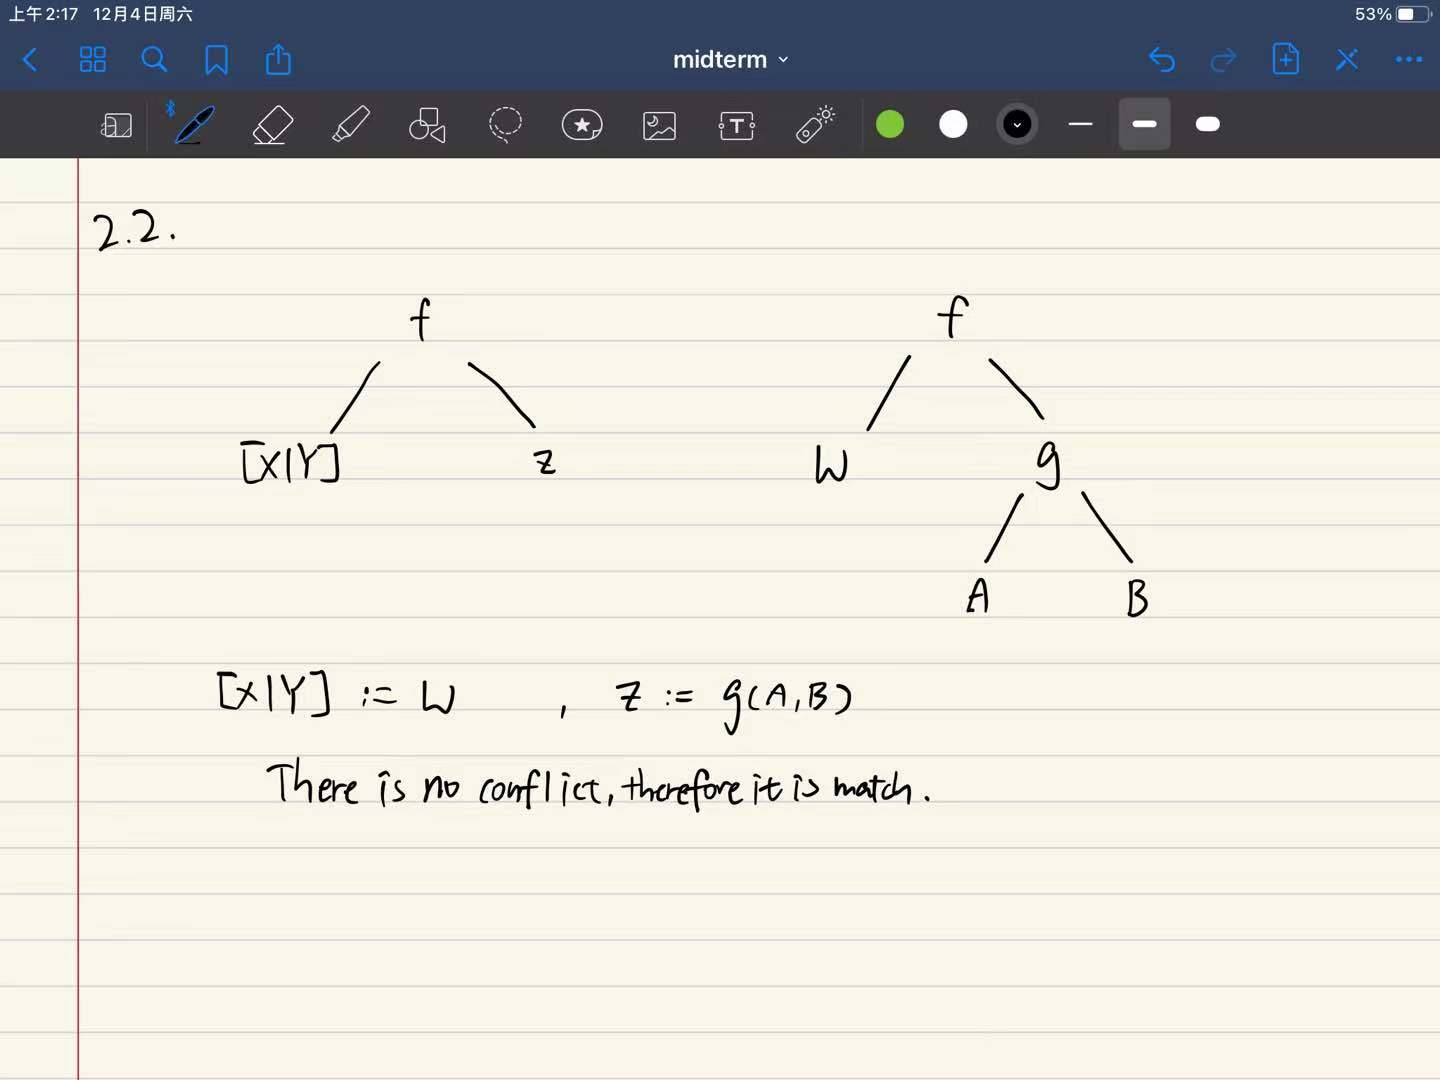 上午2:17 12月4日周六 53%
midterm
T
2.2.
f f
[X|Y] z W g
A B
[X|Y] := W , Z := g(A,B)
There is no conflict, therefore it is match.